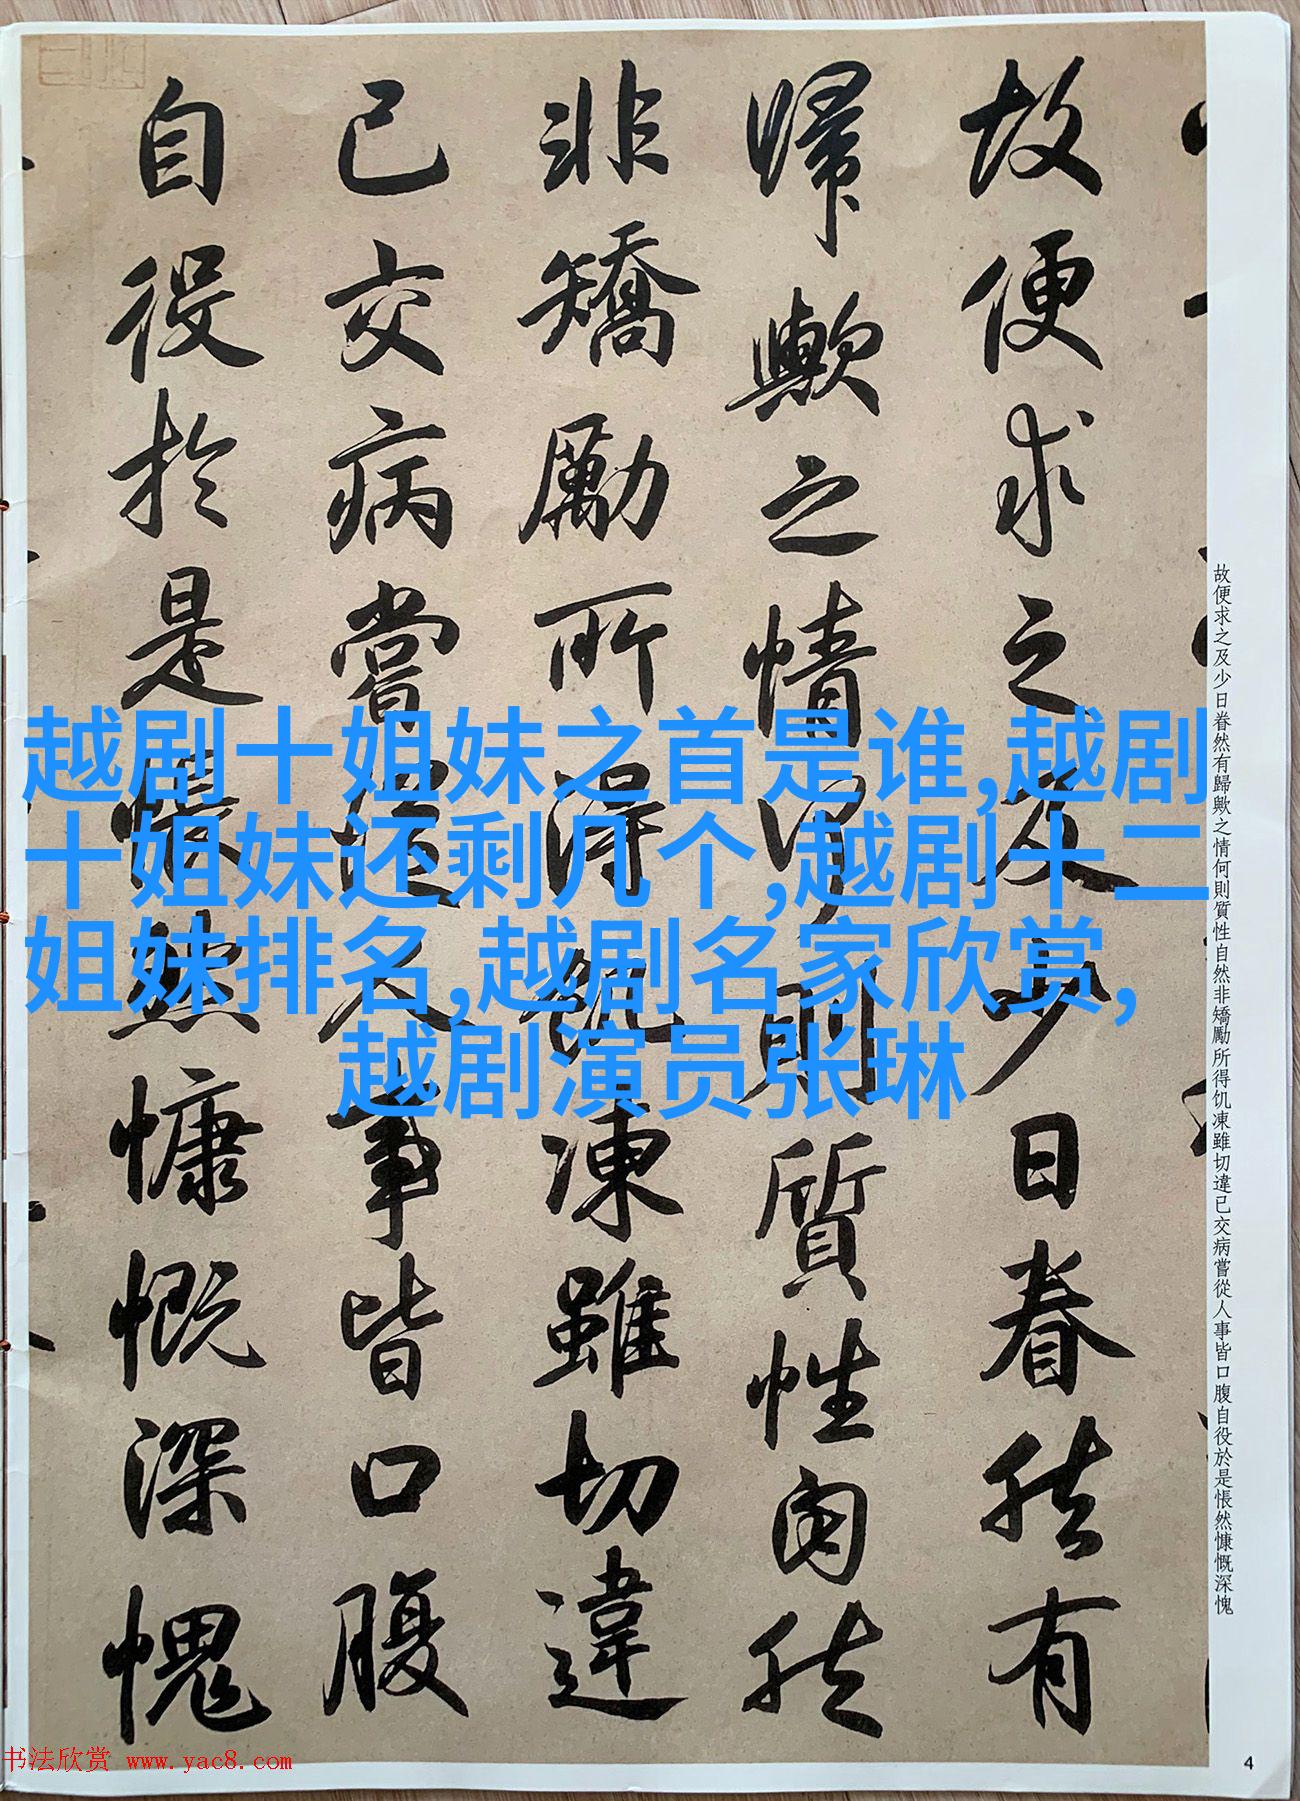 故便求之及少日眷然有
歸歟之情何則質性自然
非矯勵所得飢凍雖切違
已交病嘗從人事皆口腹
自役於是悵然慷慨深愧
故便求之及少日眷然有歸歟之情何則質性自然非矯勵所得饥凍雖切違已交病嘗從人事皆口腹自役於是悵然慷慨深愧
越剧十姐妹之首是谁,越剧
十姐妹还剩几个,越剧十二
姐妹排名,越剧名家欣赏,
越剧演员张琳
书法欣赏 www.yac8.com
4